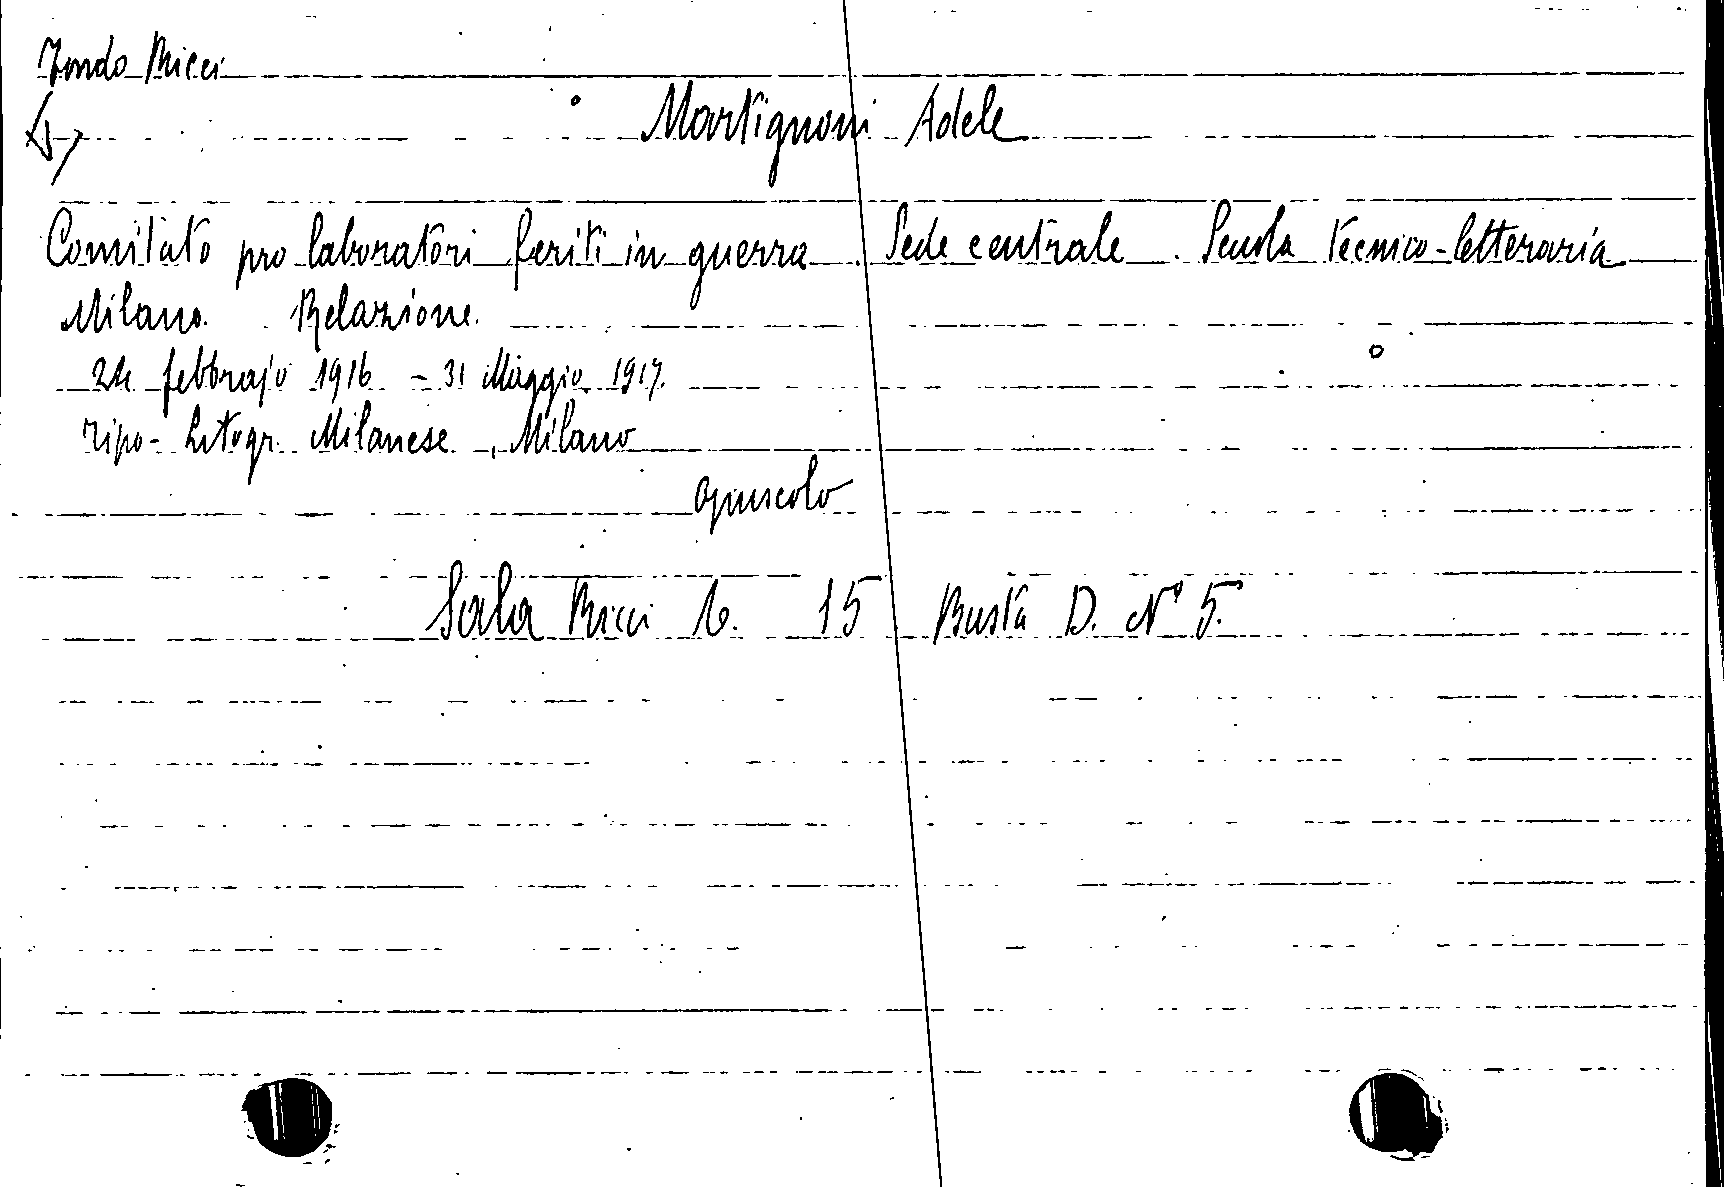 Fondo Ricci
Martignoni Adele
Comitato pro laboratori feriti in guerra. Sede centrale. Scuola tecnico-letteraria
Milano. Relazione.
24 febbrajo 1916 - 31 Maggio 1917.
Tipo-Litogr. Milanese, Milano
opuscolo
Sala Ricci 6. 15 Busta D. N° 5.